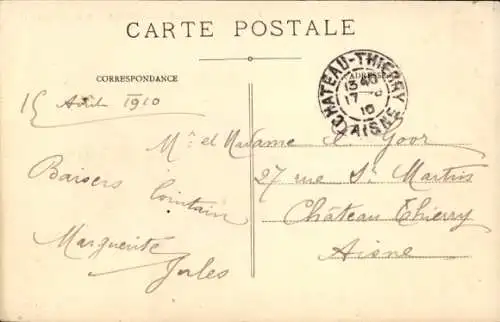 CARTE POSTALE
CORRESPONDANCE
ADRESSE
CHATEAU-THIERRY
13 40
17 -8
10
AISNE
15 Août 1910
Baisers lointain
Marguerite
Jules
Mr et Madame Goor
27 rue St Martin
Château Thierry
Aisne